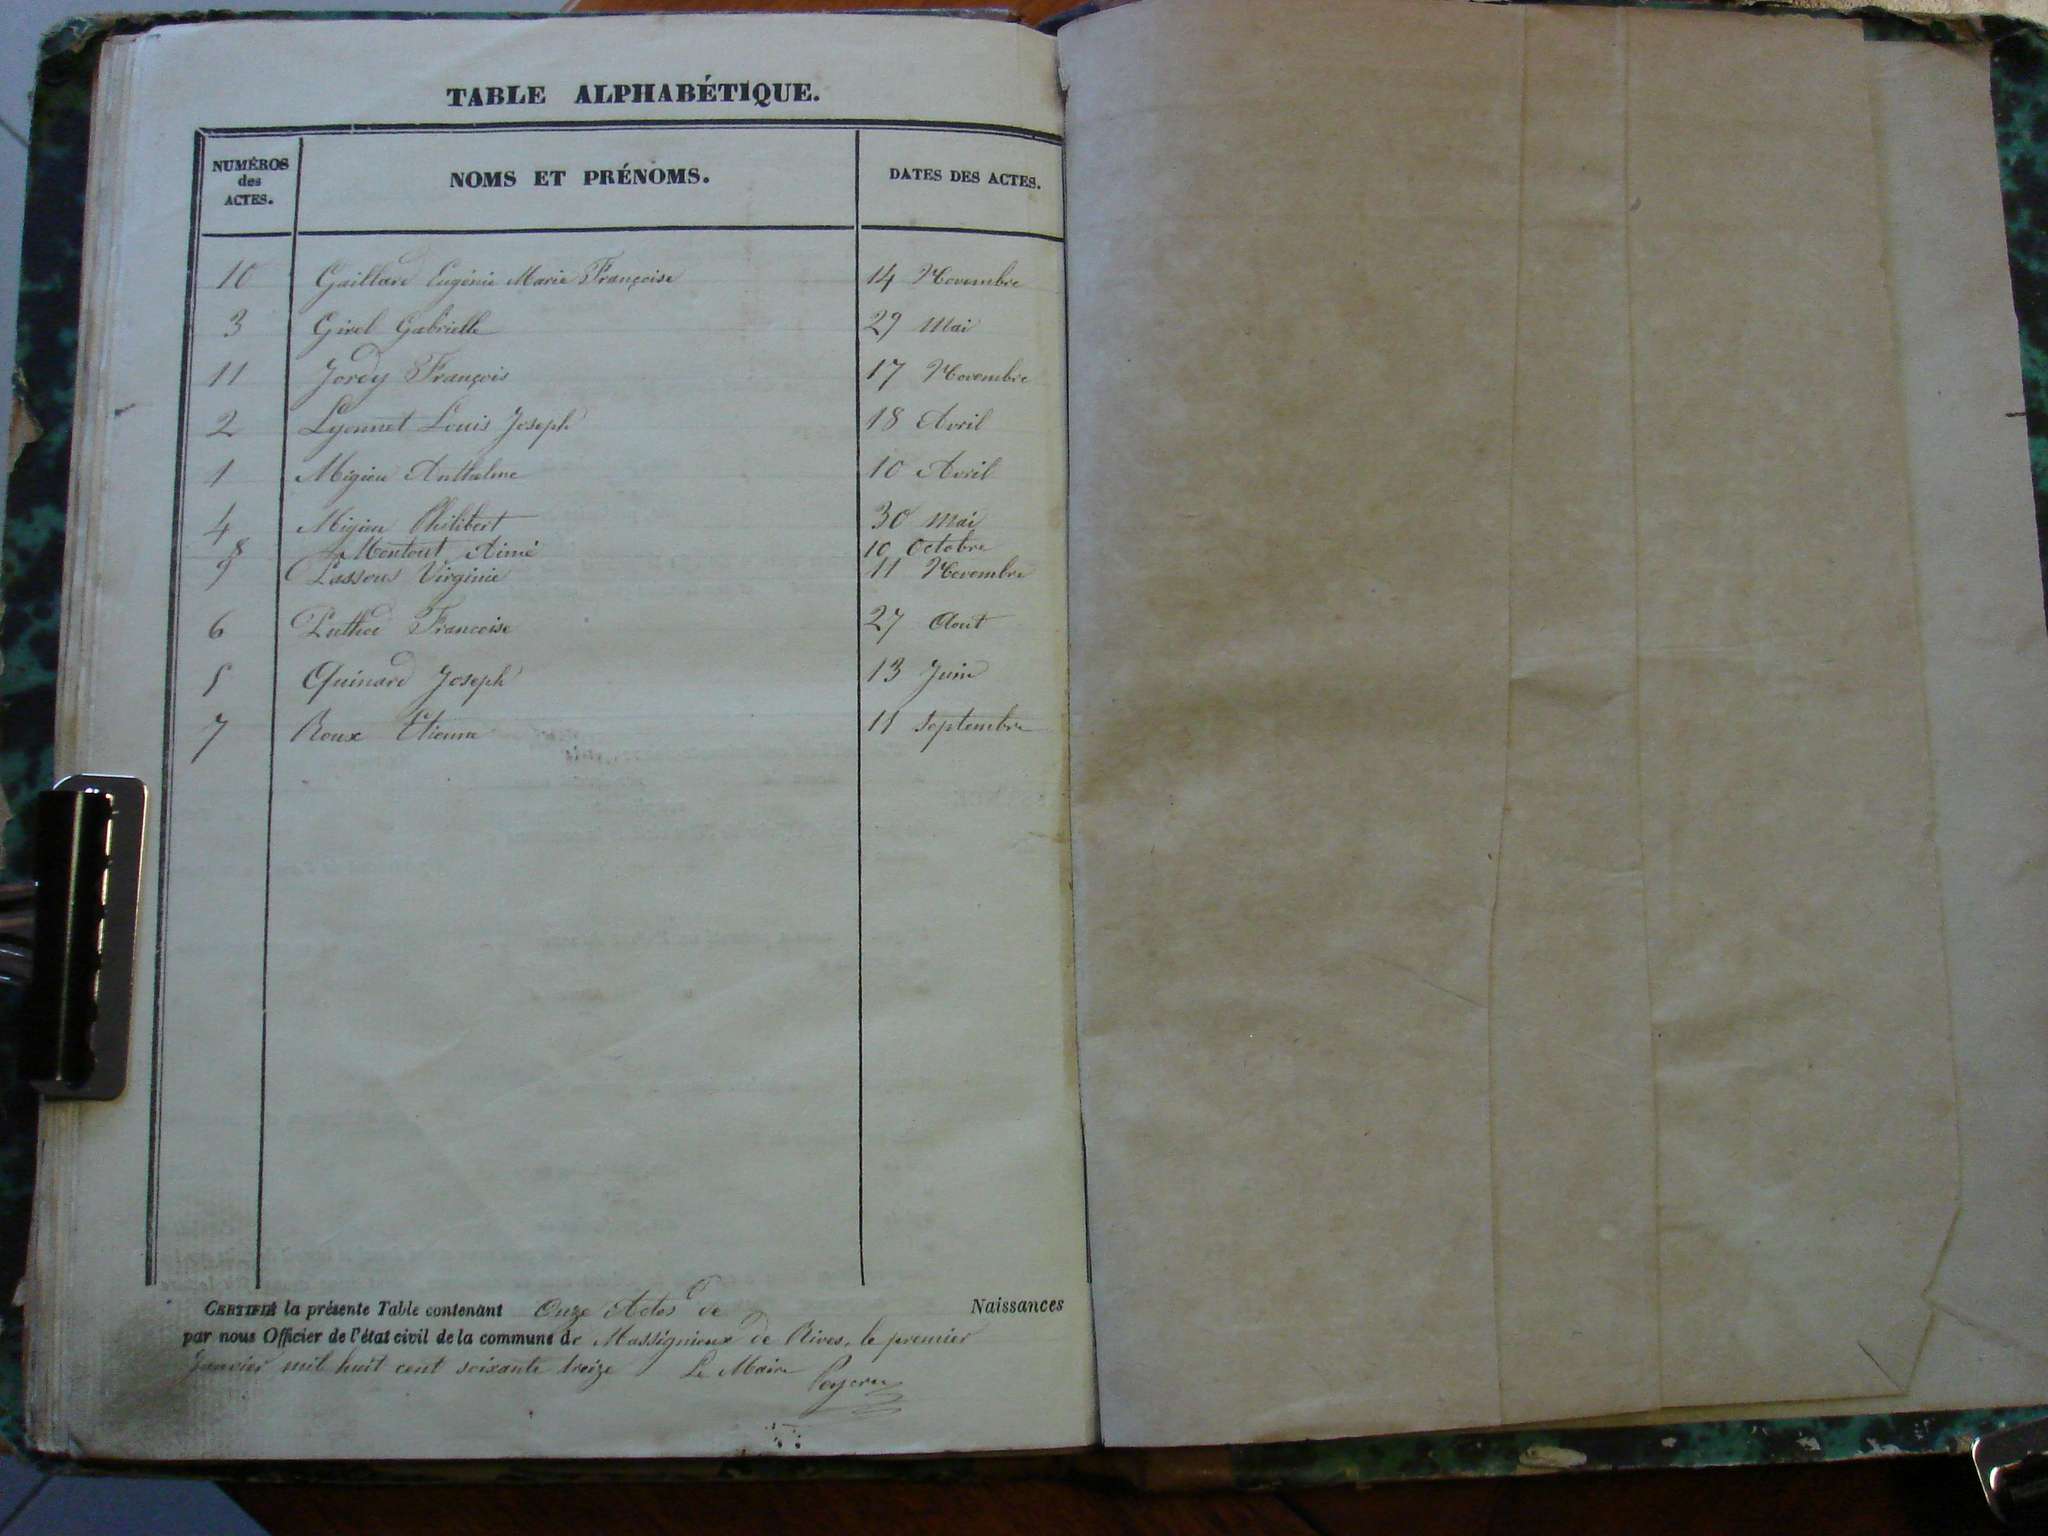 TABLE ALPHABÉTIQUE.
NUMÉROS des ACTES. NOMS ET PRÉNOMS. DATES DES ACTES.
10 Gaillard Eugénie Marie Françoise 14 Novembre
3 Girel Gabrielle 29 Mai
11 Jordy François 17 Novembre
2 Lyonnet Louis Joseph 18 Avril
1 Migieu Anthelme 10 Avril
4 Migieu Philibert 30 Mai
8 Montout Aimé 10 Octobre
9 Virginie 11 Novembre
6 Puthod Francoise 27 Aout
5 Quinard Joseph 13 Juin
7 Roux Etienne 11 Septembre
CERTIFIÉ la présente Table contenant Onze Actes de Naissances
par nous Officier de l'état civil de la commune de Massignieux de Rives, le premier
Janvier mil huit cent soixante treize Le Maire